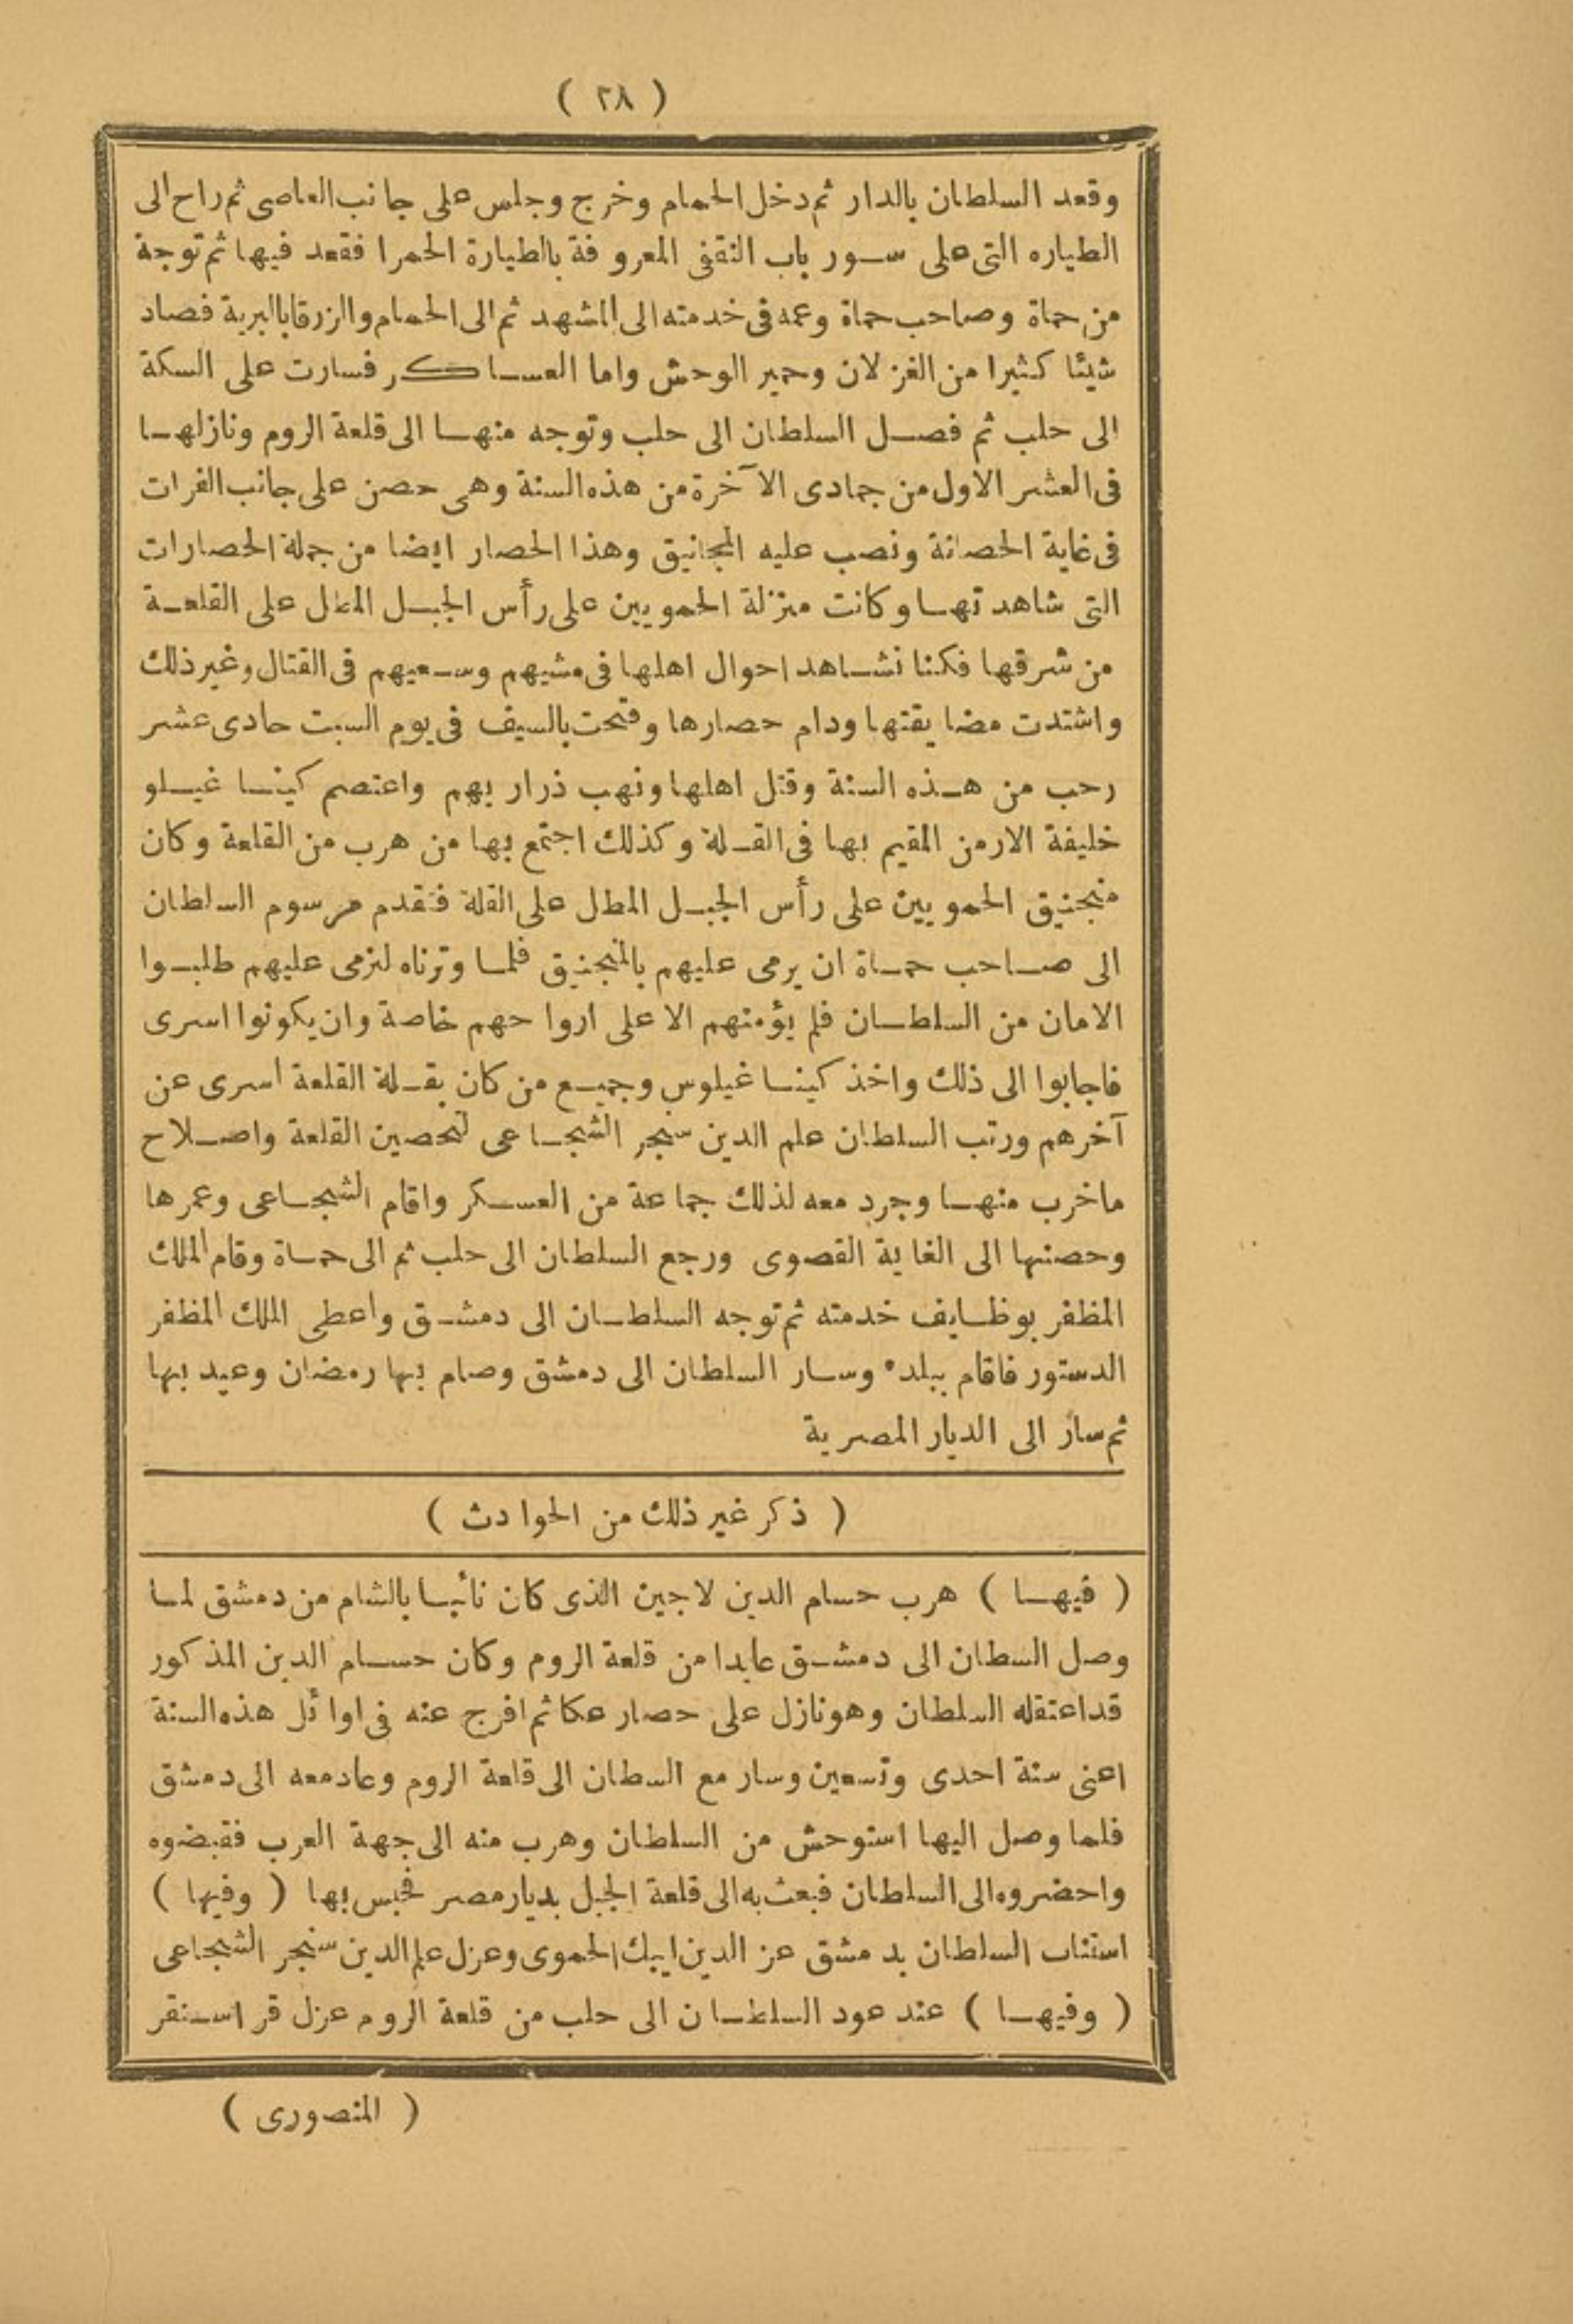 ( ٢٨ )
وقعد السلطان بالدار ثم دخل الحمام وخرج وجلس على جانب العاصى ثم راح الى
الطياره التى على سور باب النقفى المعروفة بالطيارة الحمرا فقعد فيها ثم توجة
من حماة وصاحب حماة وعمه فى خدمته الى المشهد ثم الى الحمام والزرقا بالبرية فصاد
شيئا كثيرا من الغزلان وحمير الوحش واما العساكر فسارت على السكة
الى حلب ثم فصل السلطان الى حلب وتوجه منها الى قلعة الروم ونازلها
فى العشر الاول من جمادى الآخرة من هذه السنة وهى حصن على جانب الفرات
فى غاية الحصانة ونصب عليه المجانيق وهذا الحصار ايضا من جملة الحصارات
التى شاهدتها وكانت منزلة الحمويين على رأس الجبل المطل على القلعة
من شرقها فكنا نشاهد احوال اهلها فى مشيهم وسعيهم فى القتال وغير ذلك
واشتدت مضايقتها ودام حصارها وفتحت بالسيف فى يوم السبت حادى عشر
رحب من هذه السنة وقتل اهلها ونهب ذراريهم واعتصم كينا غيلو
خليفة الارمن المقيم بها فى القلة وكذلك اجتمع بها من هرب من القلعة وكان
منجنيق الحمويين على رأس الجبل المطل على القلة فتقدم مرسوم السلطان
الى صاحب حماة ان يرمى عليهم بالمنجنيق فلما وترناه لنرمى عليهم طلبوا
الامان من السلطان فلم يؤمنهم الا على ارواحهم خاصة وان يكونوا اسرى
فاجابوا الى ذلك واخذ كينا غيلوس وجميع من كان بقلة القلعة اسرى عن
آخرهم ورتب السلطان علم الدين سنجر الشجاعى لتحصين القلعة واصلاح
ماخرب منها وجرد معه لذلك جماعة من العسكر واقام الشجاعى وعمرها
وحصنها الى الغاية القصوى ورجع السلطان الى حلب ثم الى حماة وقام الملك
المظفر بوظايف خدمته ثم توجه السلطان الى دمشق واعطى الملك المظفر
الدستور فاقام ببلده وسار السلطان الى دمشق وصام بها رمضان وعيد بها
ثم سار الى الديار المصرية
( ذكر غير ذلك من الحوادث )
( فيها ) هرب حسام الدين لاجين الذى كان نائبا بالشام من دمشق لما
وصل السطان الى دمشق عايدا من قلعة الروم وكان حسام الدين المذكور
قد اعتقله السلطان وهو نازل على حصار عكا ثم افرج عنه فى اوائل هذه السنة
اعنى سنة احدى وتسعين وسار مع السطان الى قلعة الروم وعاد معه الى دمشق
فلما وصل اليها استوحش من السلطان وهرب منه الى جهة العرب فقبضوه
واحضروه الى السلطان فبعث به الى قلعة الجبل بديار مصر فحبس بها ( وفيها )
استناب السلطان بدمشق عز الدين ايبك الحموى وعزل علم الدين سنجر الشجاعى
( وفيها ) عند عود السلطان الى حلب من قلعة الروم عزل قرا سنقر
( المنصورى )